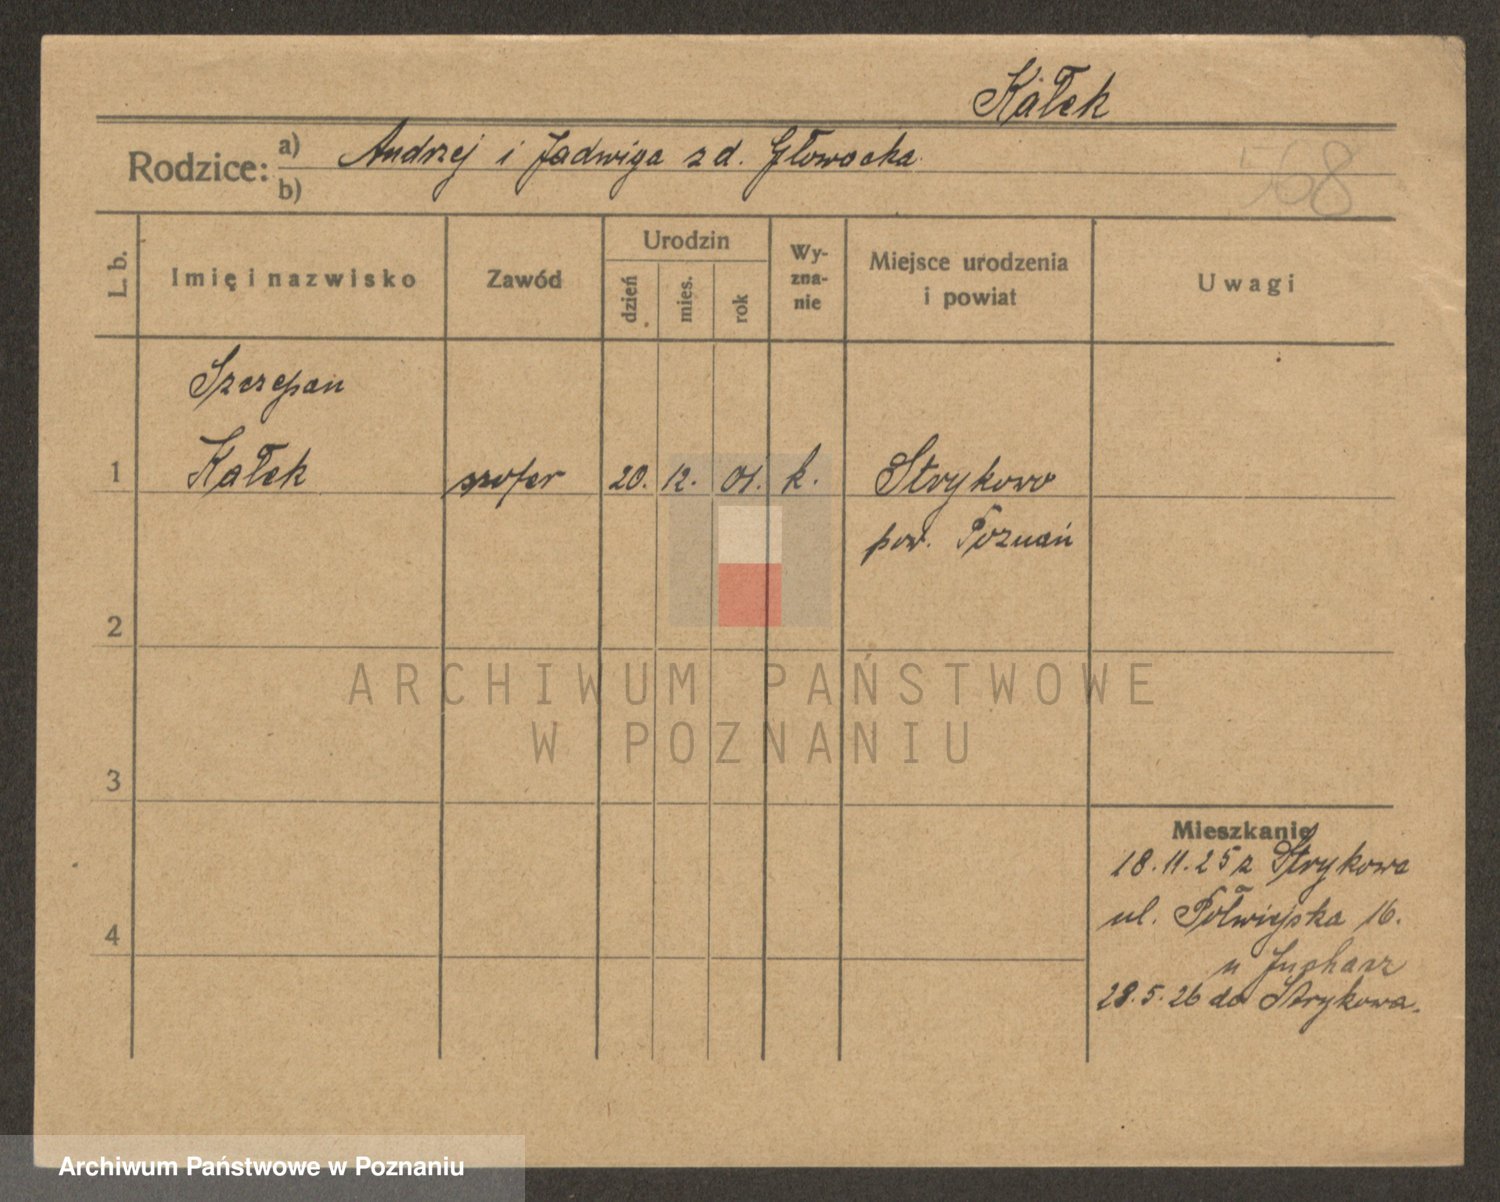 Kałek
Rodzice: a) Andrzej i Jadwiga z d. Głowacka
b)
768
L. b.
Imię i nazwisko
Zawód
Urodzin
dzień
mies.
rok
Wy-
zna-
nie
Miejsce urodzenia
i powiat
Uwagi
Szczepan
1 Kałek szofer 20. 12. 01. k. Strykowo
pow. Poznań
2
3
4
Mieszkanie
18.11.25 z Strykowa
ul. Półwiejska 16.
u
28.5.26 do Strykowa.
ARCHIWUM PAŃSTWOWE
W POZNANIU
Archiwum Państwowe w Poznaniu